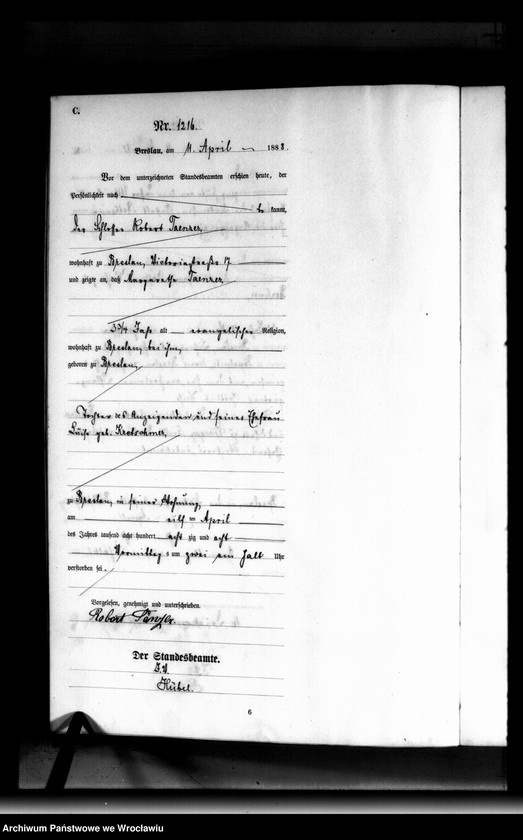 C.
Nr. 1216.
Breslau, am 11. April 1888.
Vor dem unterzeichneten Standesbeamten erschien heute, der
Persönlichkeit nach
be kannt,
der Schlosser Robert Taenzer,
wohnhaft zu Breslau, Victoriastraße 17
und zeigte an, daß Margarethe Taenzer,
3 3/4 Jahr alt evangelischer Religion,
wohnhaft zu Breslau, bei ihm,
geboren zu Breslau,
Tochter des Anzeigenden und seiner Ehefrau
Luise geb. Kretschmer,
zu Breslau, in seiner Wohnung,
am eilf ten April
des Jahres tausend acht hundert acht zig und acht
Vormittag s um zwei ein halb Uhr
verstorben sei.
Vorgelesen, genehmigt und unterschrieben.
Robert Tänzer.
Der Standesbeamte.
J.V.
Hübel.
6
Archiwum Państwowe we Wrocławiu